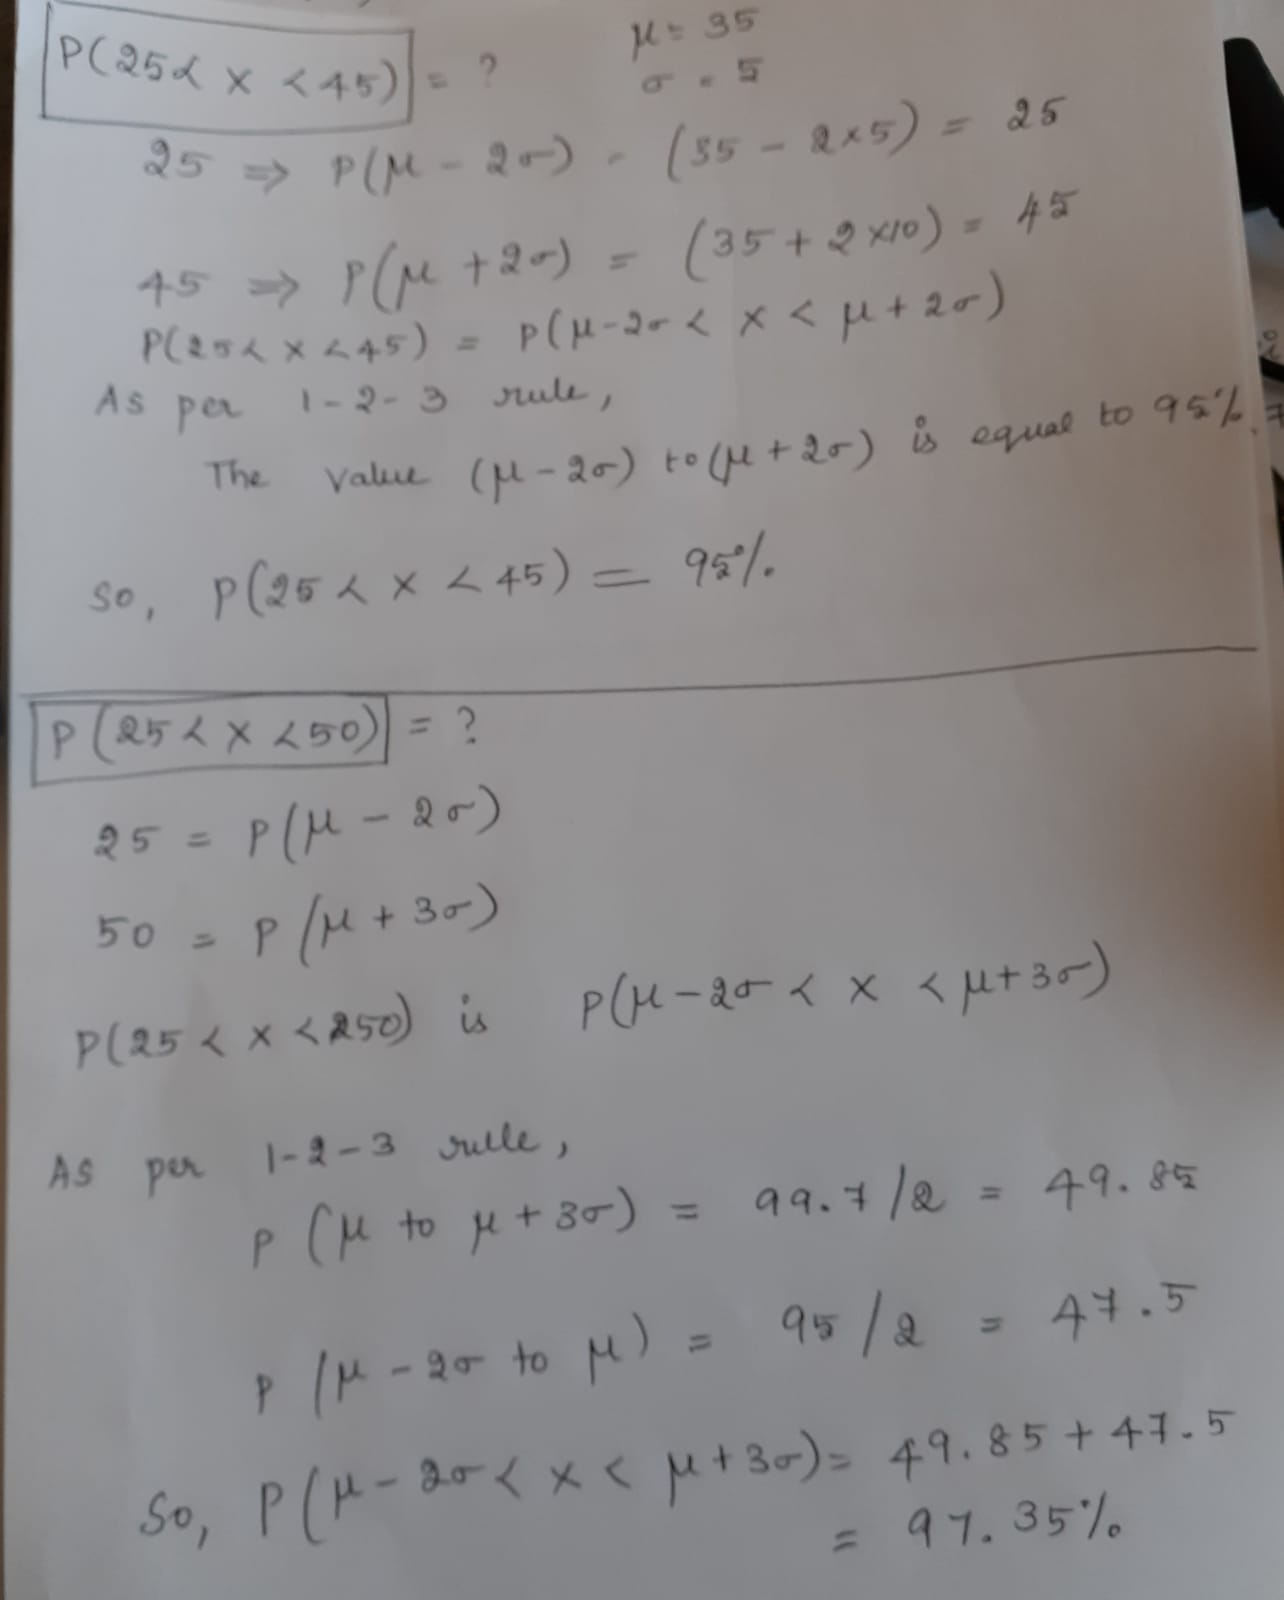 P(25< x <45) = ?
μ = 35
σ = 5
25 ⇒ P(μ - 2σ) - (35 - 2x5) = 25
45 ⇒ P(μ + 2σ) = (35 + 2x10) = 45
P(25< x <45) = P(μ-2σ < x < μ + 2σ)
As per 1-2-3 rule,
The value (μ - 2σ) to (μ + 2σ) is equal to 95%.
So, P(25 < x < 45) = 95%.
P(25 < x < 50) = ?
25 = P(μ - 2σ)
50 = P(μ + 3σ)
P(25 < x < 250) is P(μ - 2σ < x < μ+3σ)
As per 1-2-3 rule,
P (μ to μ + 3σ) = 99.7/2 = 49.85
P (μ - 2σ to μ) = 95/2 = 47.5
So, P(μ - 2σ < x < μ + 3σ) = 49.85 + 47.5
= 97.35%